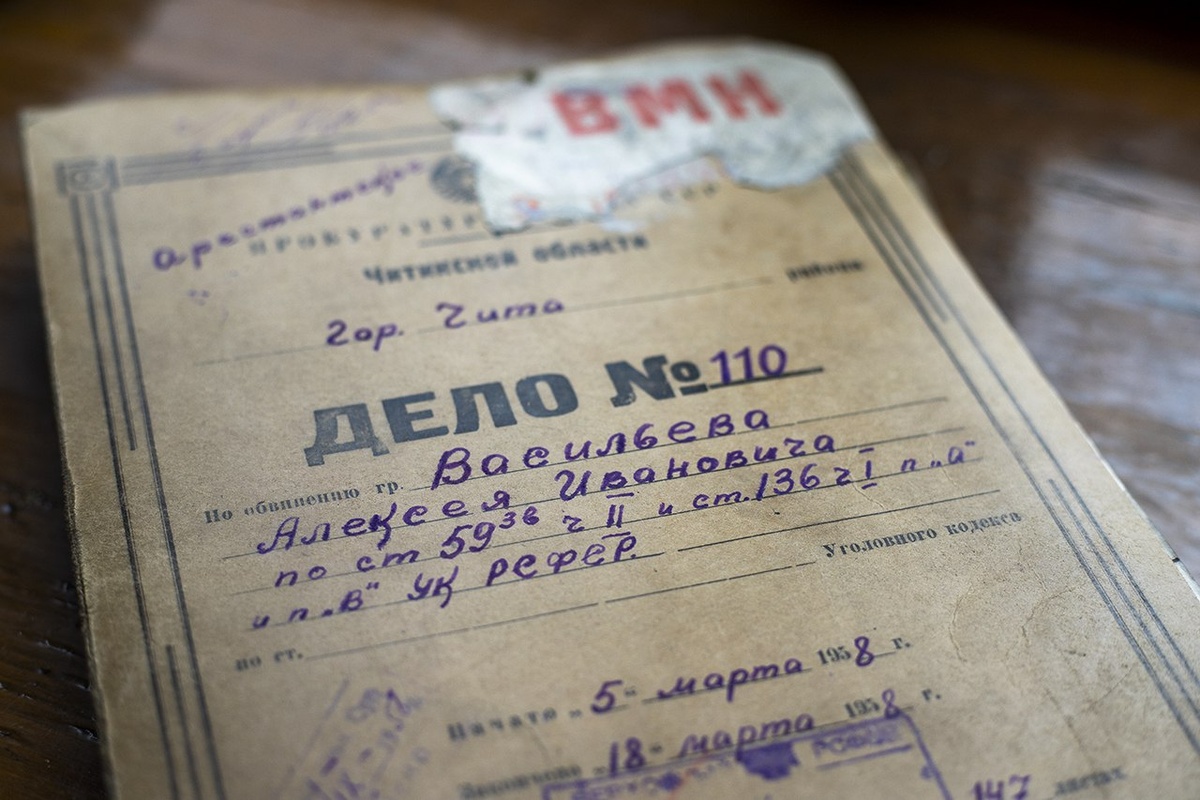 ВМН
Арестантское
ПРОКУРАТУРА
Читинской области
гор. Чита района
ДЕЛО № 110
По обвинению гр. Васильева
Алексея Ивановича
по ст 59³ᵇ ч II и ст. 136 ч I п „а“
и п. „в“ УК РСФСР.
Уголовного кодекса
по ст.
Начато „5“ марта 1958 г.
Закончено „18“ марта 1958 г.
147 листах